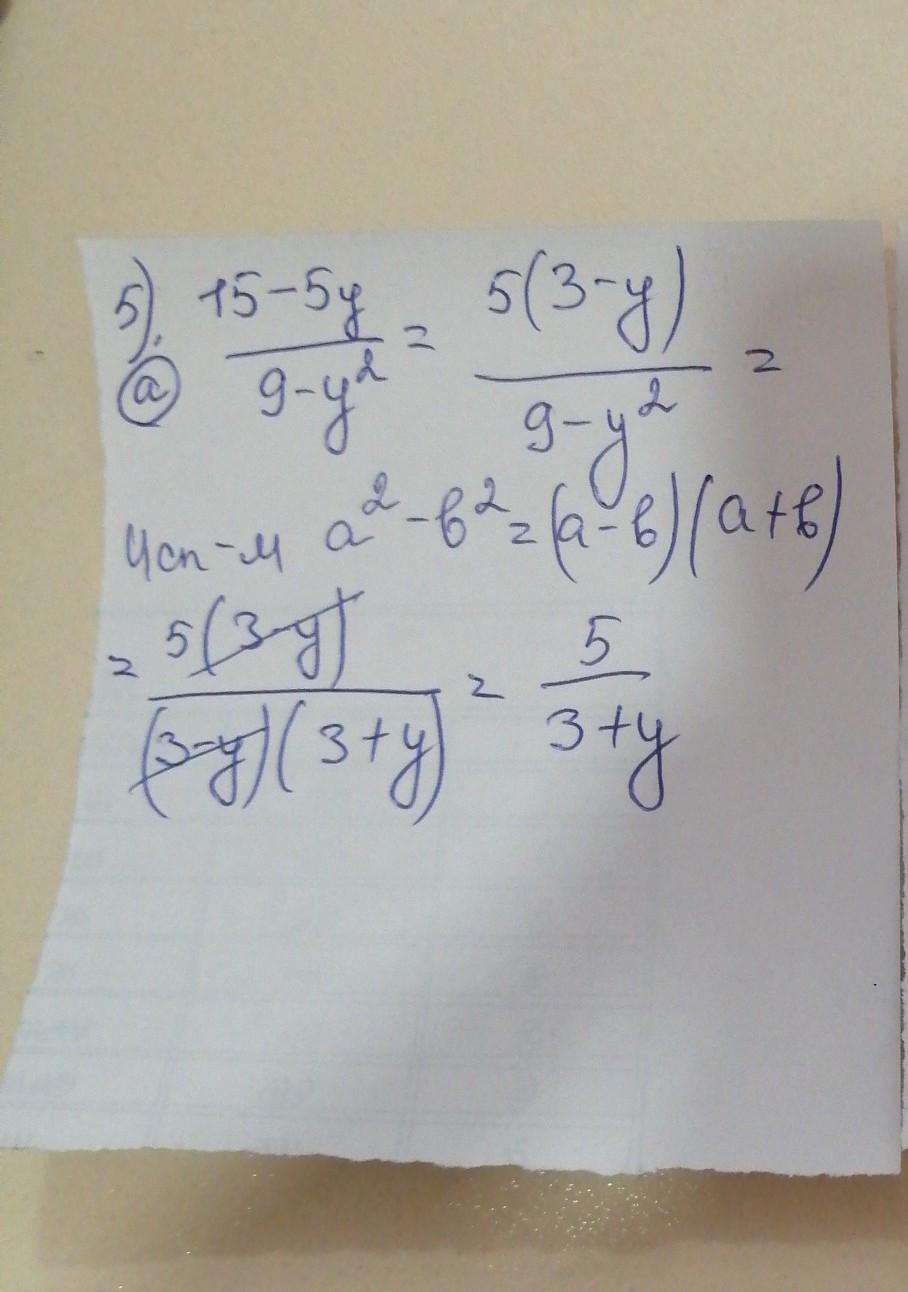 5). 15-5y/9-y² = 5(3-y)/9-y² =
а
Исп-м a²-в²=(a-в)(a+в)
= 5(3-y)/(3-y)(3+y) = 5/3+y